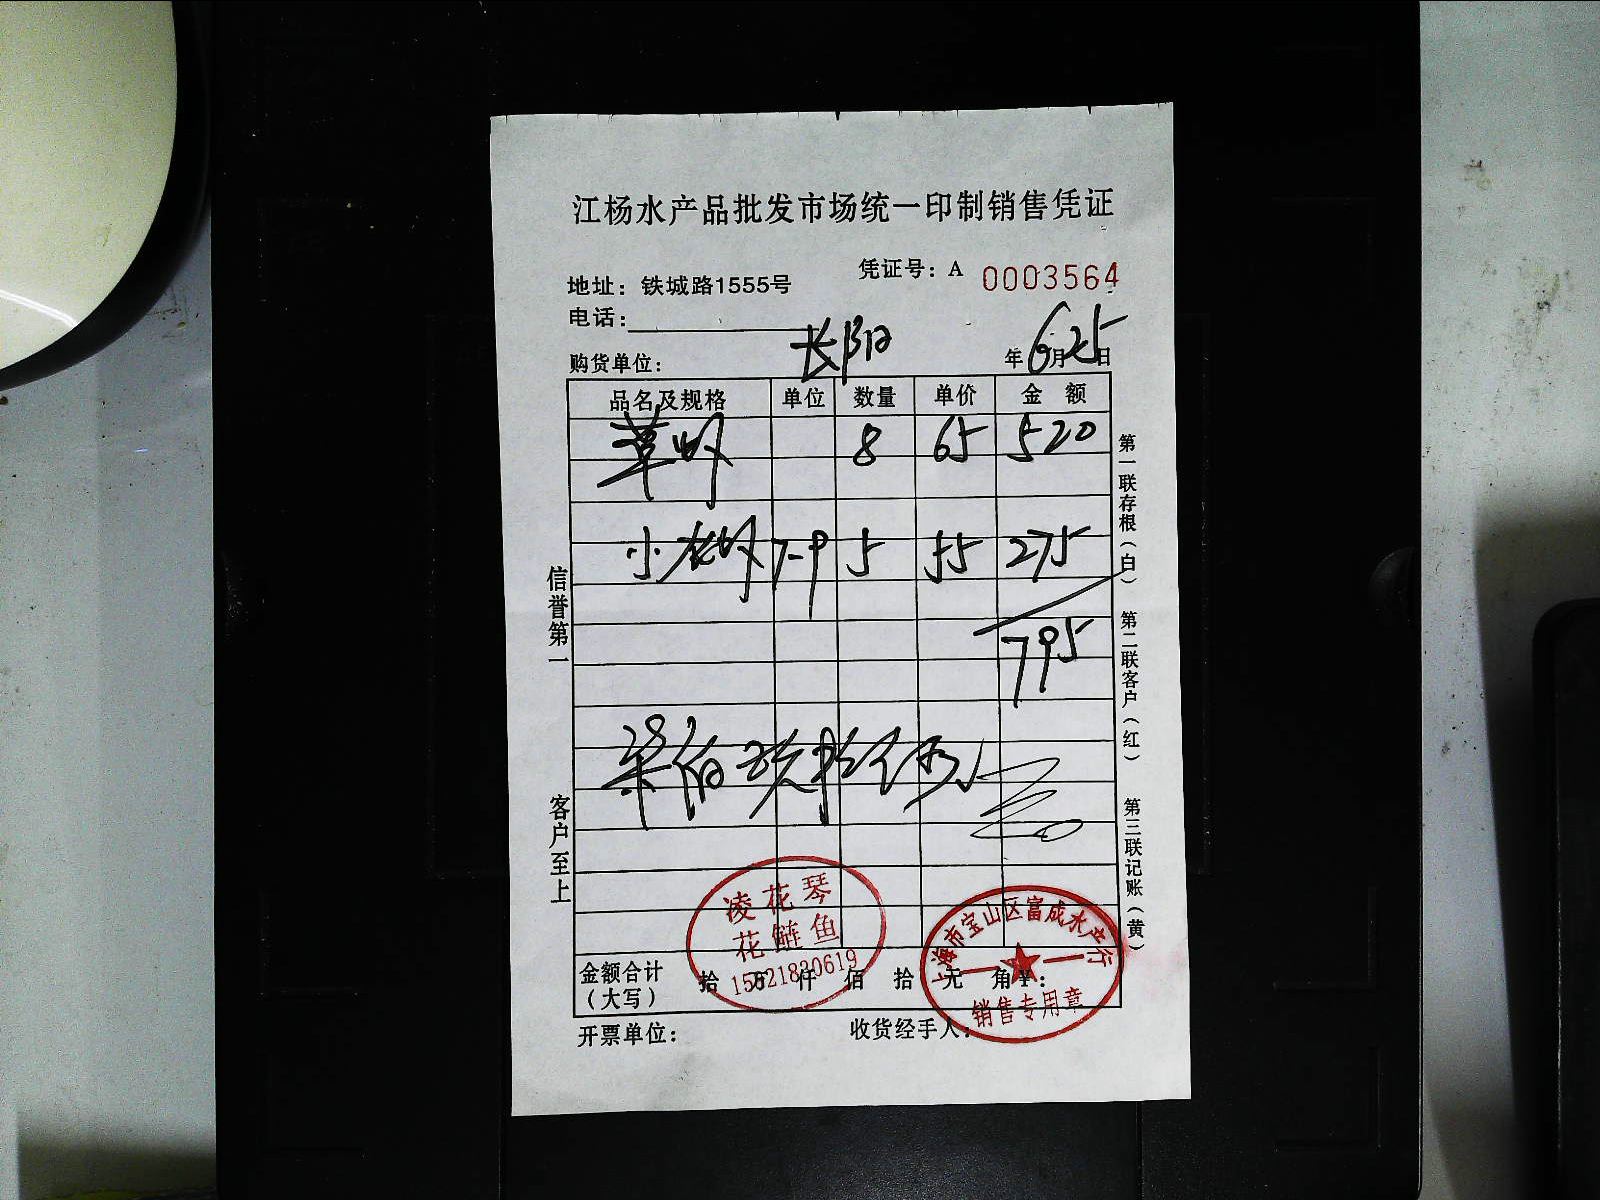 江杨水产品批发市场统一印制销售凭证
凭证号：A 0003564
地址：铁城路1555号
电话：
购货单位： 长阳 年 6月25日
品名及规格 单位 数量 单价 金额
草虾 8 65 520
小龙虾 7-9 5 55 275
795
柒佰玖拾伍元
信誉第一
客户至上
第一联存根（白）
第二联客户（红）
第三联记账（黄）
凌花琴
花鲢鱼
上海市宝山区富成水产行
销售专用章
金额合计（大写） 拾 万 仟 佰 拾 元 角
开票单位： 收货经手人：